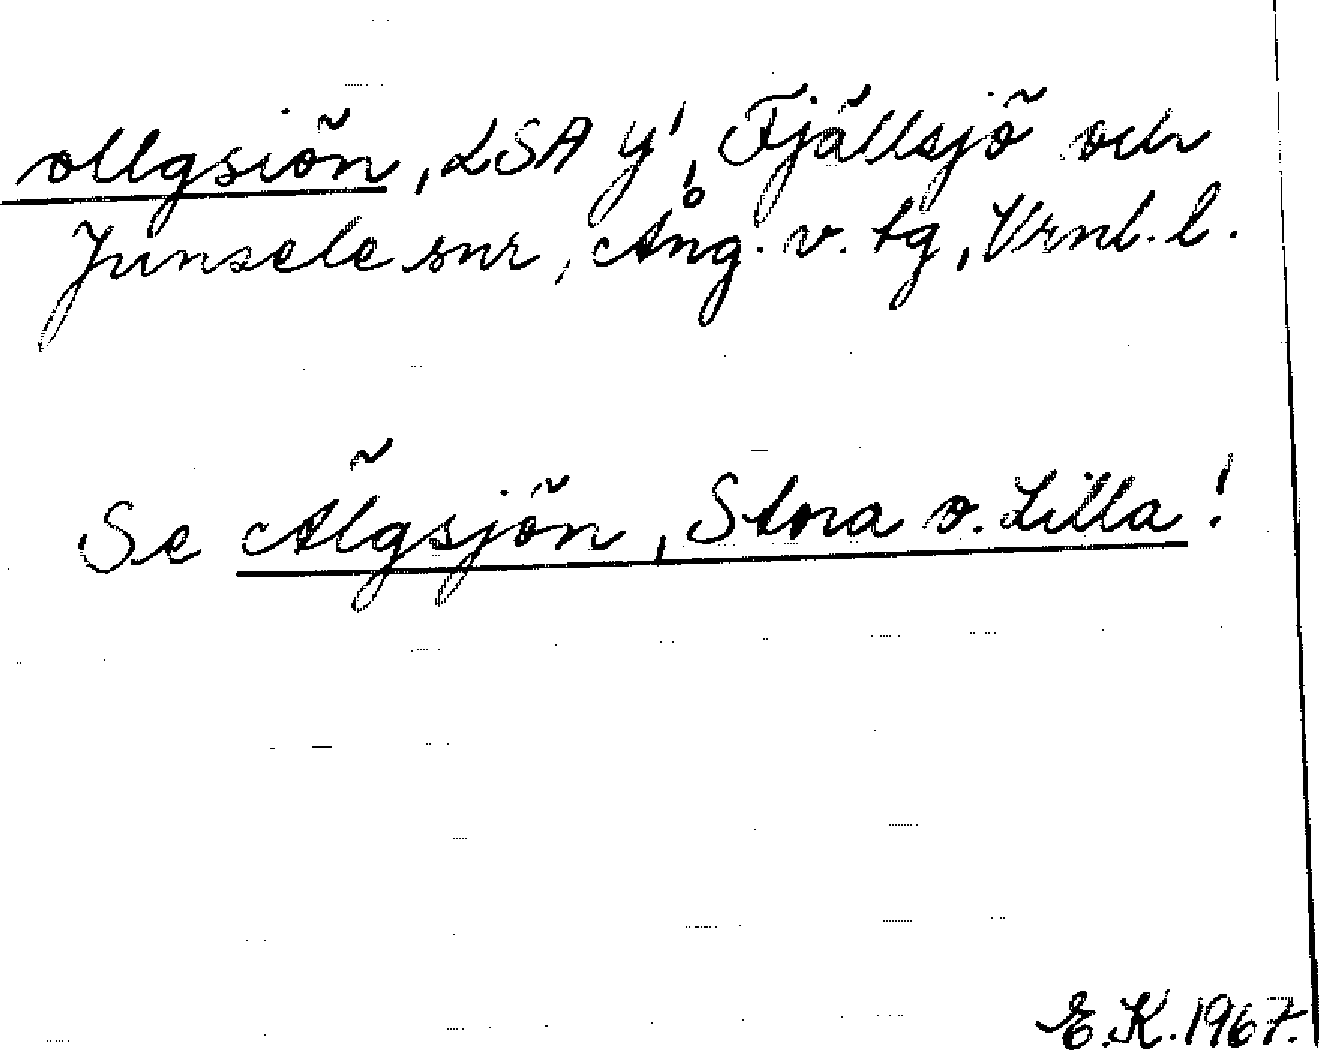 ollgsiön, LSA y', Fjällsjö och
Junsele snr, Ång. v. tg, Vrnl. l.
Se Älgsjön, Stora o. Lilla!
E.K. 1967.